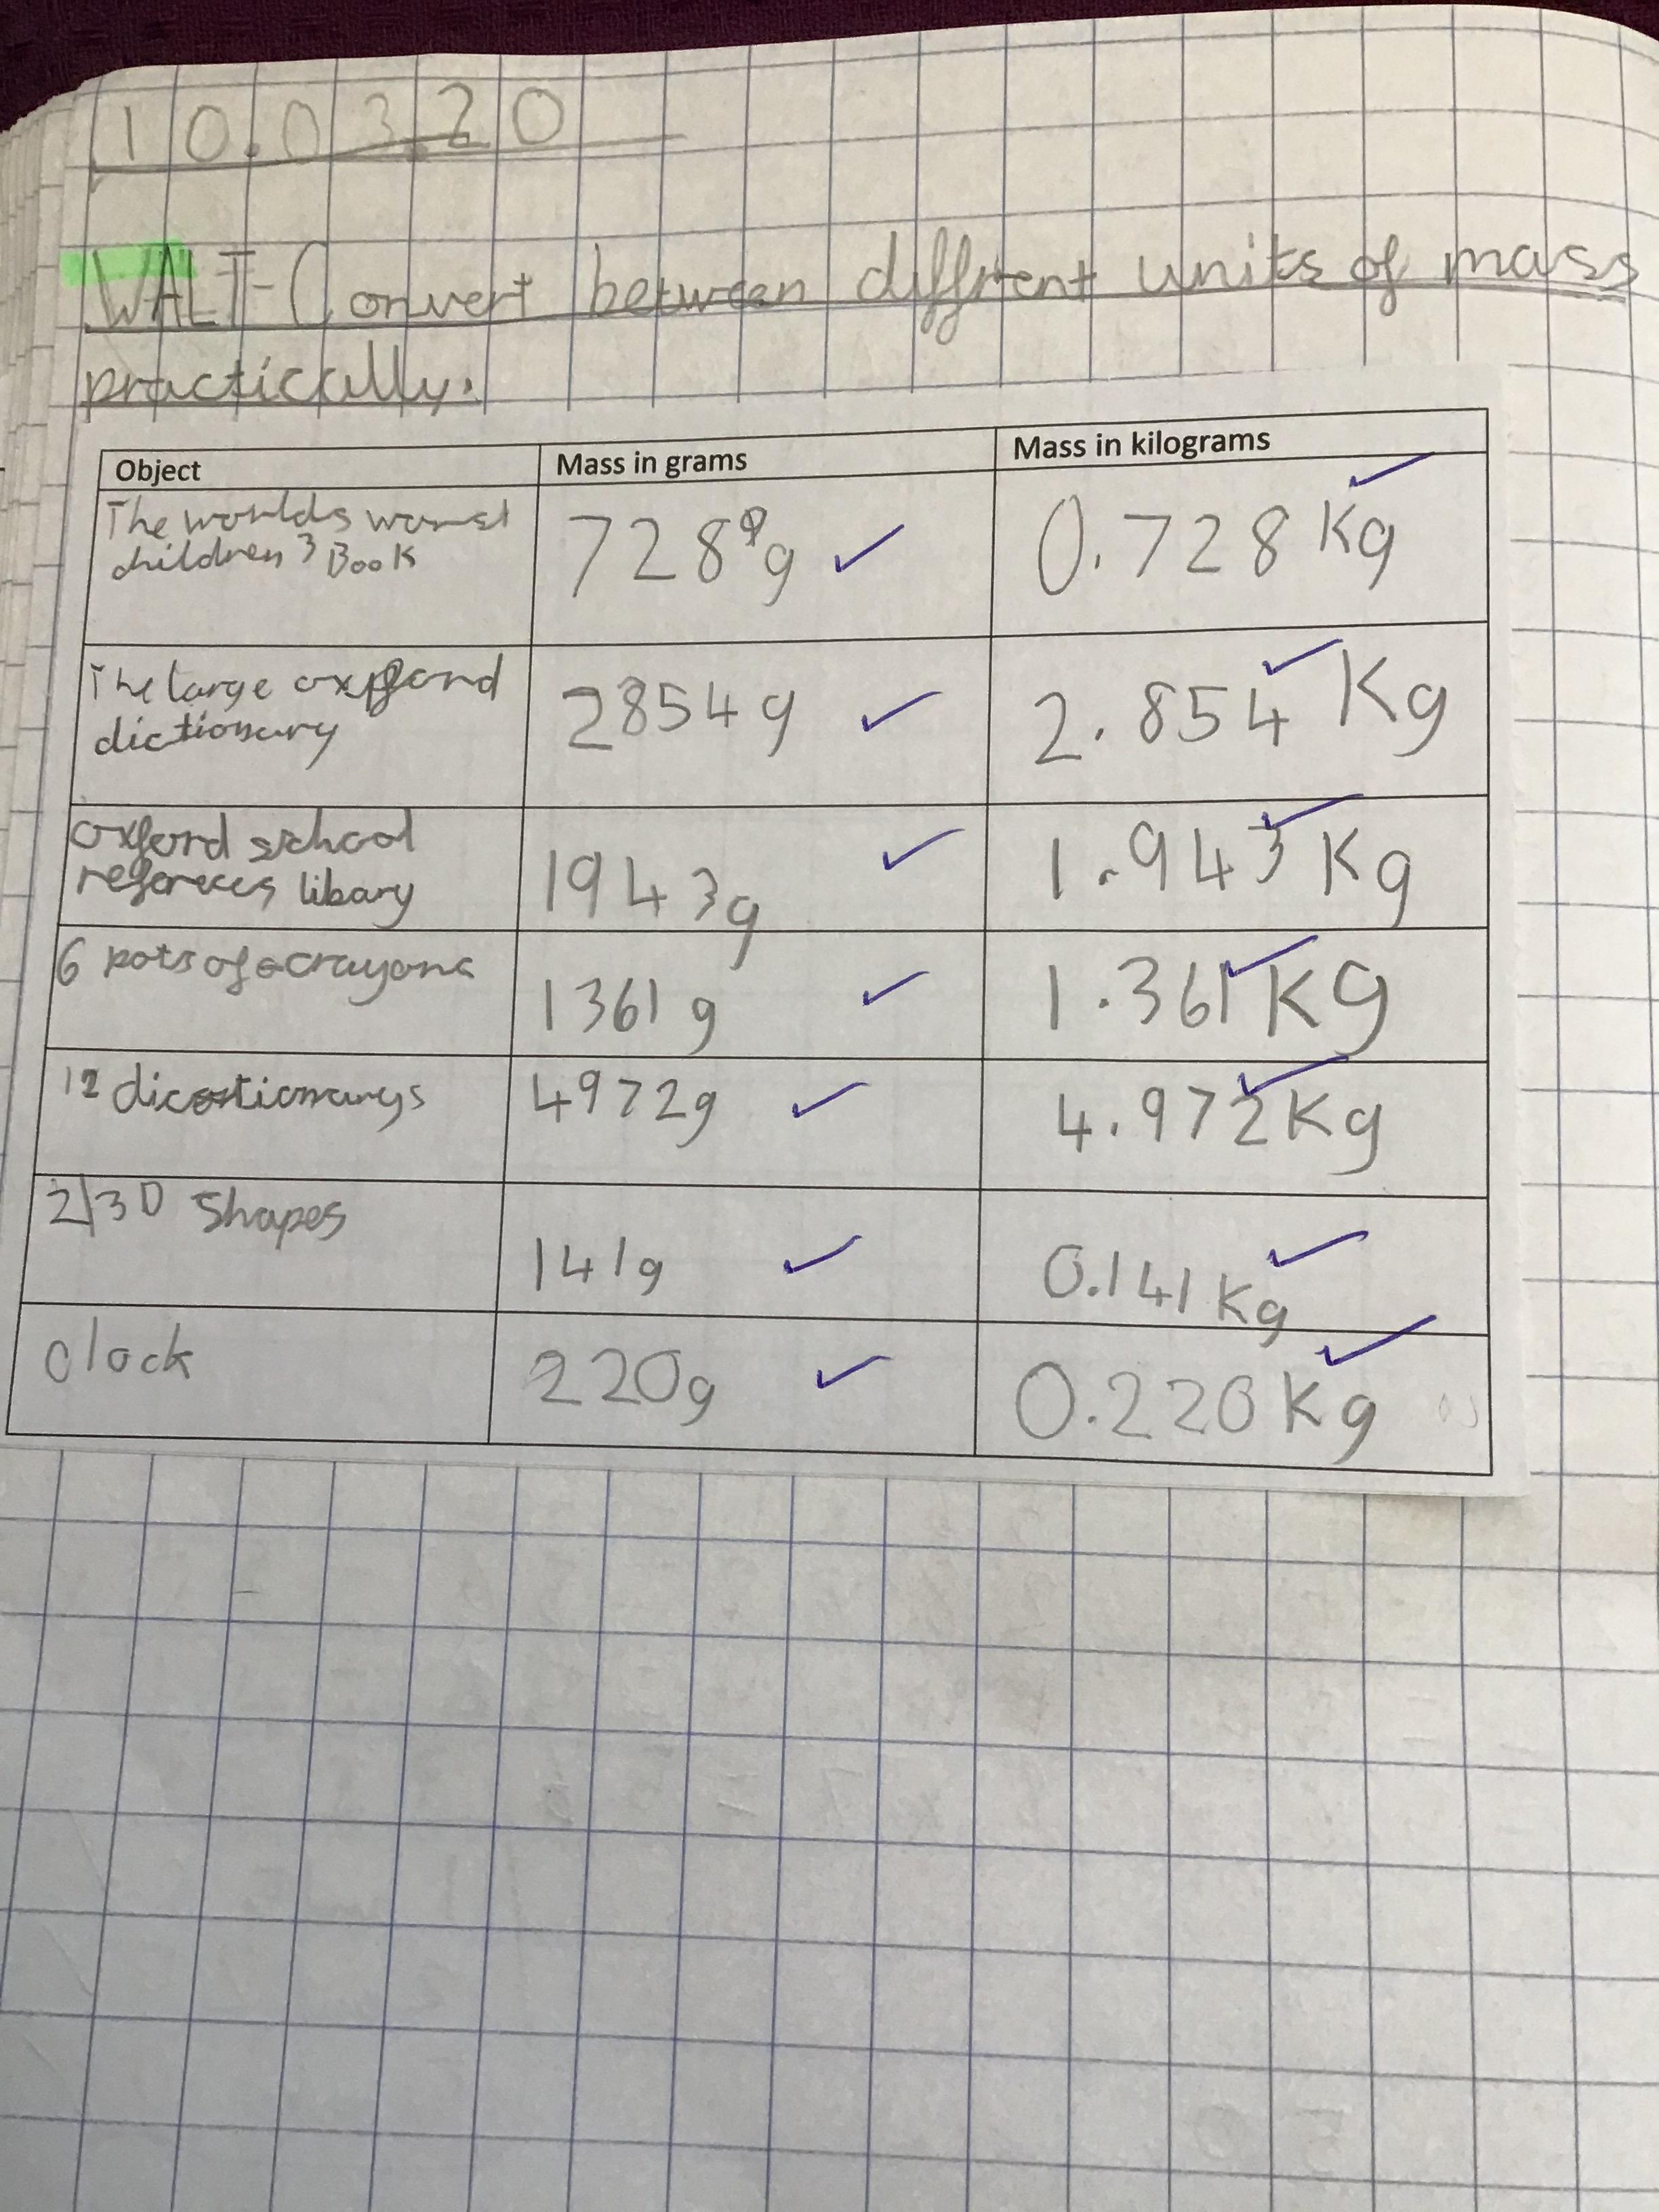 10.03.20
WALT- Convert between diffrent units of mass
practically.
Object Mass in grams Mass in kilograms
The worlds worst
children 3 Book
728g
0.728 Kg
The large oxford
dictionary
2854g
2.854 Kg
oxford school
refereces libary
1943g
1.943 Kg
6 pots of crayons
1361g
1.361 Kg
12 dicostionarys
4972g
4.972 Kg
2/3D Shapes
141g
0.141 Kg
clock
220g
0.220 Kg